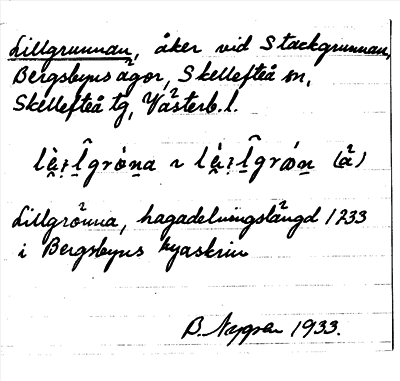 Lillgrunnan, åker vid Stackgrunnan,
Bergsbyns ägor, Skellefteå sn,
Skellefteå tg, Västerb. l.
(a²)
Lillgrönna, hagadelningslängd 1233
i Bergsbyns byaskrin
B. Nygren 1933.